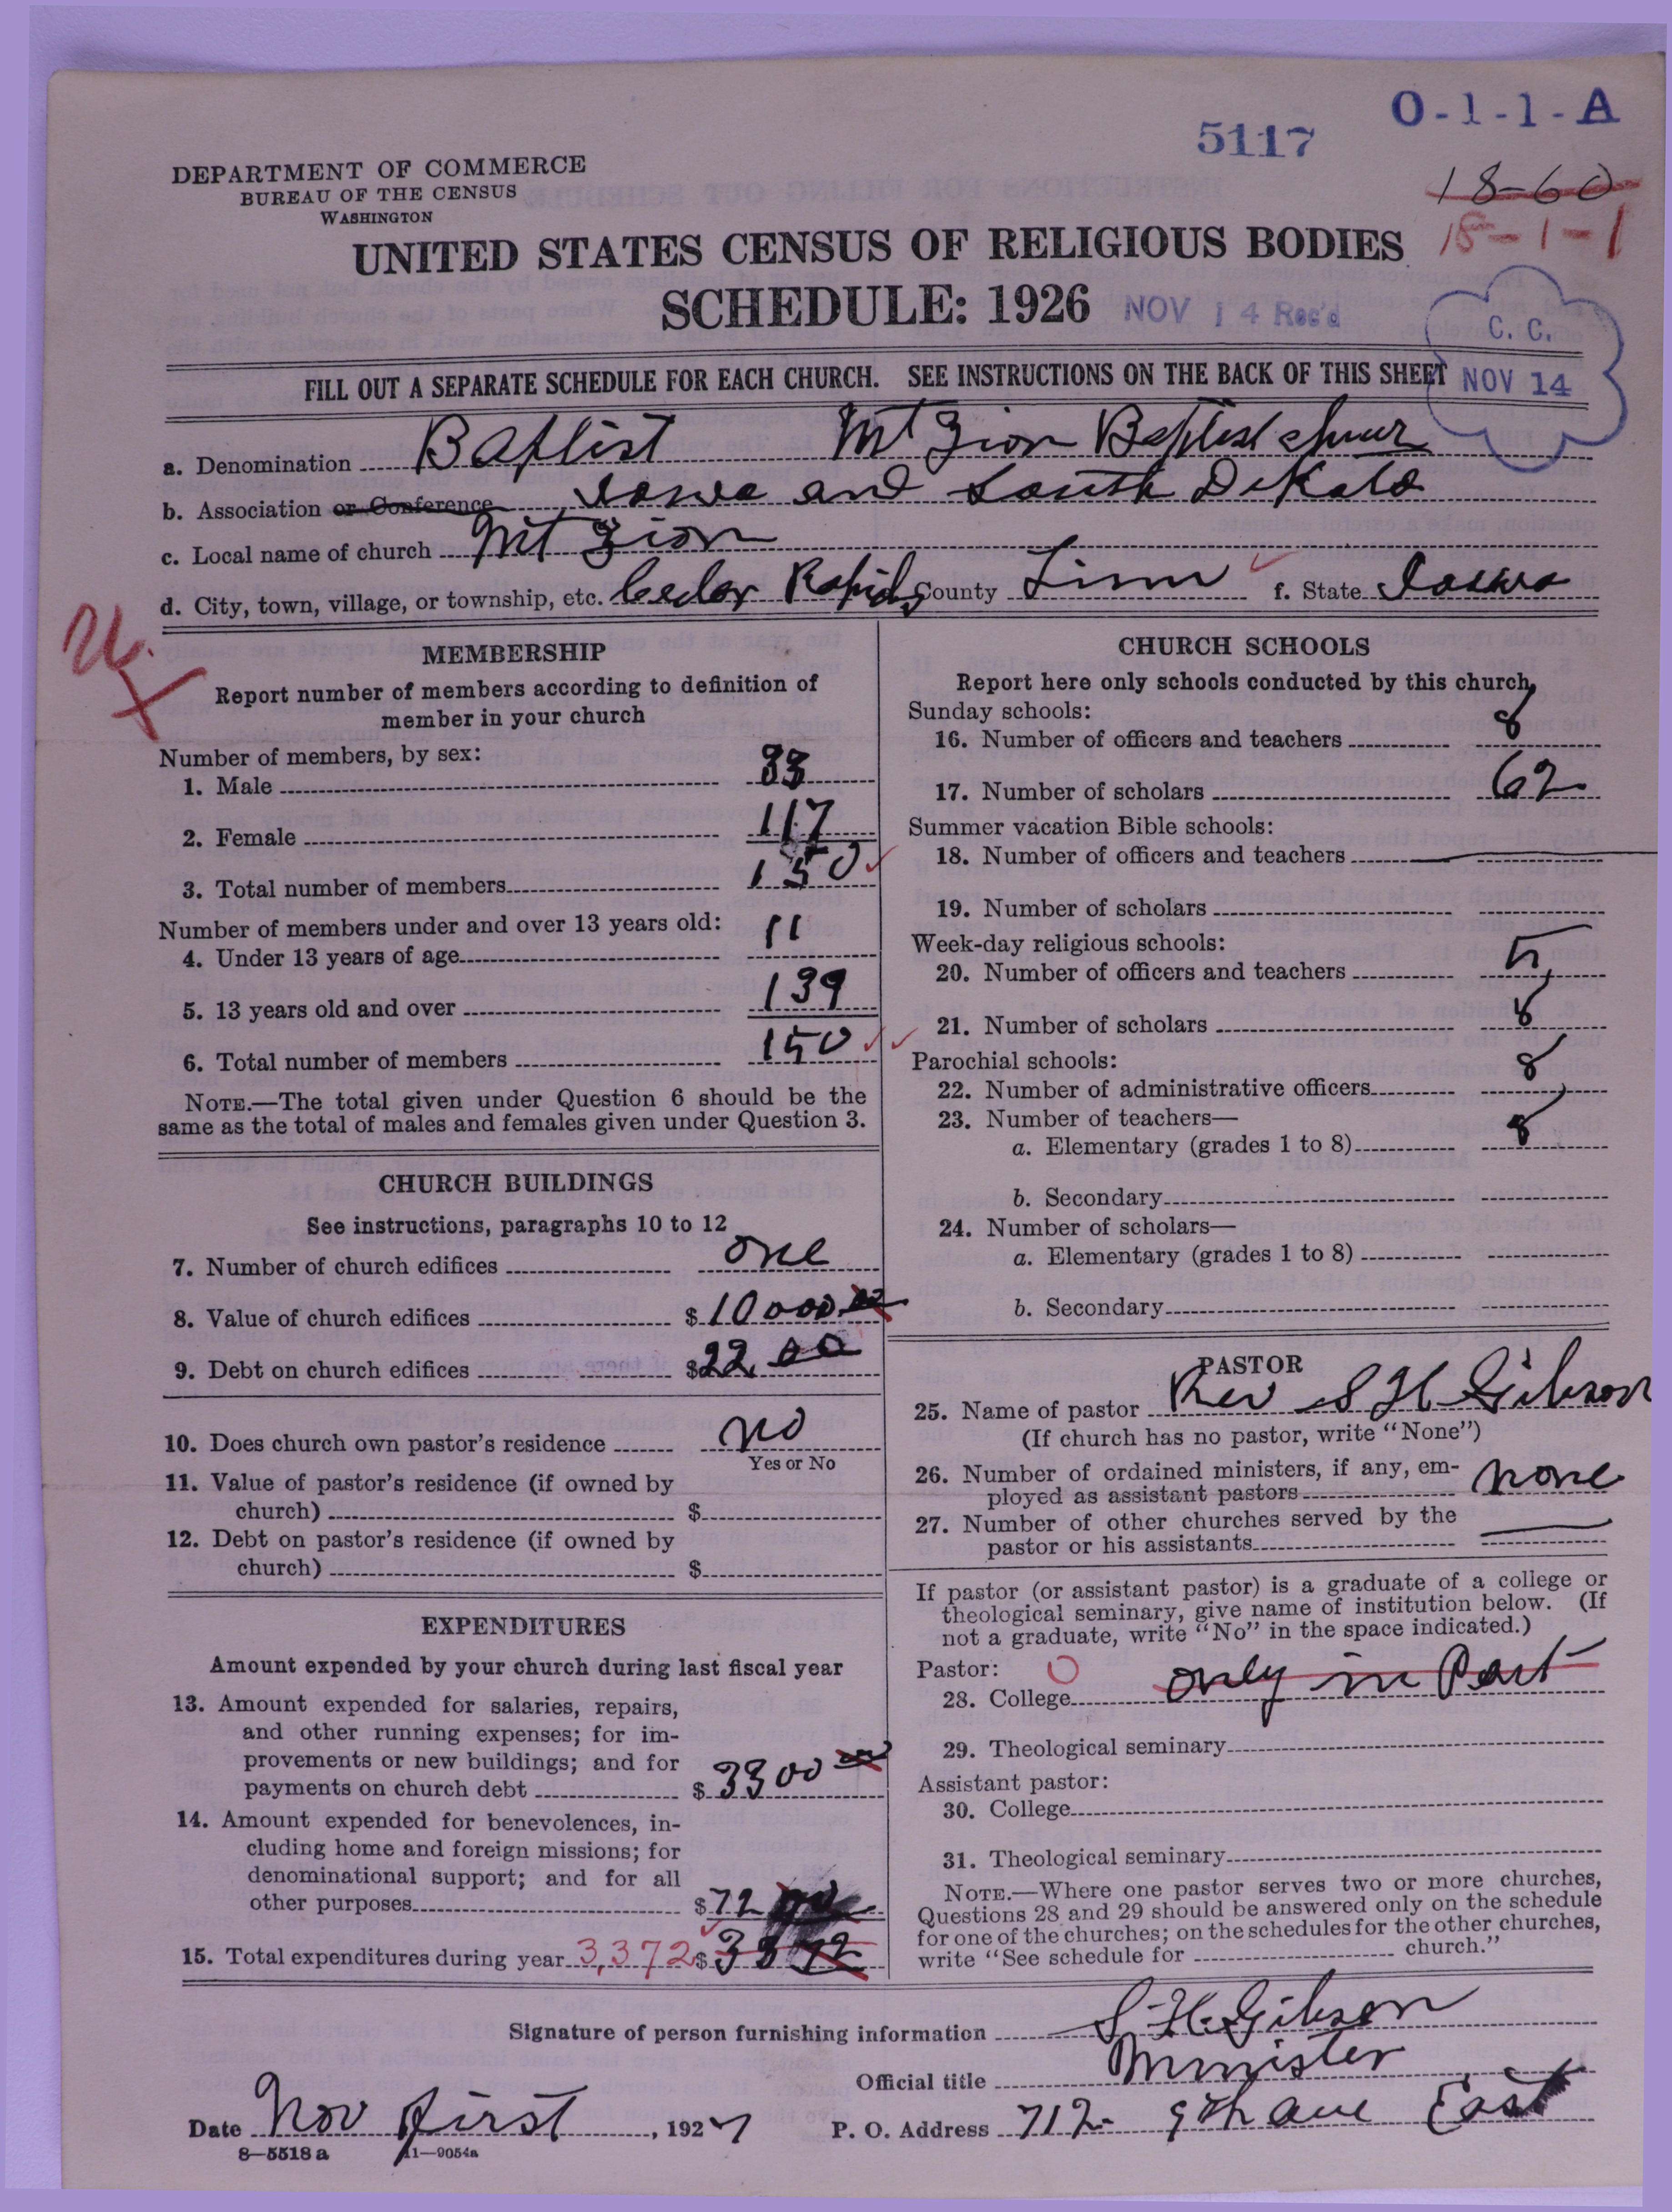 O-1-1-A
5117
DEPARTMENT OF COMMERCE
BUREAU OF THE CENSUS
WASHINGTON
18-60
18-1-1
UNITED STATES CENSUS OF RELIGIOUS BODIES
SCHEDULE: 1926
NOV 14 Rec'd
C. C.
NOV 14
FILL OUT A SEPARATE SCHEDULE FOR EACH CHURCH. SEE INSTRUCTIONS ON THE BACK OF THIS SHEET
a. Denomination Baptist Mt Zion Baptist
b. Association or Conference Iowa and South Dakota
c. Local name of church Mt Zion
d. City, town, village, or township, etc. Cedar Rapids County Linn f. State Iowa
MEMBERSHIP
Report number of members according to definition of
member in your church
Number of members, by sex:
1. Male 33
2. Female 117
3. Total number of members 150
Number of members under and over 13 years old:
4. Under 13 years of age 11
5. 13 years old and over 139
6. Total number of members 150
NOTE.—The total given under Question 6 should be the
same as the total of males and females given under Question 3.
CHURCH BUILDINGS
See instructions, paragraphs 10 to 12
7. Number of church edifices one
8. Value of church edifices $10000 00
9. Debt on church edifices $22 00
10. Does church own pastor's residence no
Yes or No
11. Value of pastor's residence (if owned by
church) $
12. Debt on pastor's residence (if owned by
church) $
EXPENDITURES
Amount expended by your church during last fiscal year
13. Amount expended for salaries, repairs,
and other running expenses; for im-
provements or new buildings; and for
payments on church debt $3300 00
14. Amount expended for benevolences, in-
cluding home and foreign missions; for
denominational support; and for all
other purposes $72
15. Total expenditures during year 3,372 $ 3372
CHURCH SCHOOLS
Report here only schools conducted by this church
Sunday schools:
16. Number of officers and teachers 8
17. Number of scholars 62
Summer vacation Bible schools:
18. Number of officers and teachers
19. Number of scholars
Week-day religious schools:
20. Number of officers and teachers 5
21. Number of scholars 8
Parochial schools:
22. Number of administrative officers 8
23. Number of teachers—
a. Elementary (grades 1 to 8) 8
b. Secondary
24. Number of scholars—
a. Elementary (grades 1 to 8)
b. Secondary
PASTOR
25. Name of pastor Rev S H Gibson
(If church has no pastor, write "None")
26. Number of ordained ministers, if any, em-
ployed as assistant pastors none
27. Number of other churches served by the
pastor or his assistants
If pastor (or assistant pastor) is a graduate of a college or
theological seminary, give name of institution below. (If
not a graduate, write "No" in the space indicated.)
Pastor: O
28. College only in Part
29. Theological seminary
Assistant pastor:
30. College
31. Theological seminary
NOTE.—Where one pastor serves two or more churches,
Questions 28 and 29 should be answered only on the schedule
for one of the churches; on the schedules for the other churches,
write "See schedule for church."
Signature of person furnishing information S. H. Gibson
Official title Minister
Date Nov first, 1927 P. O. Address 712- 9th ave East
8—5518a 11—9054a